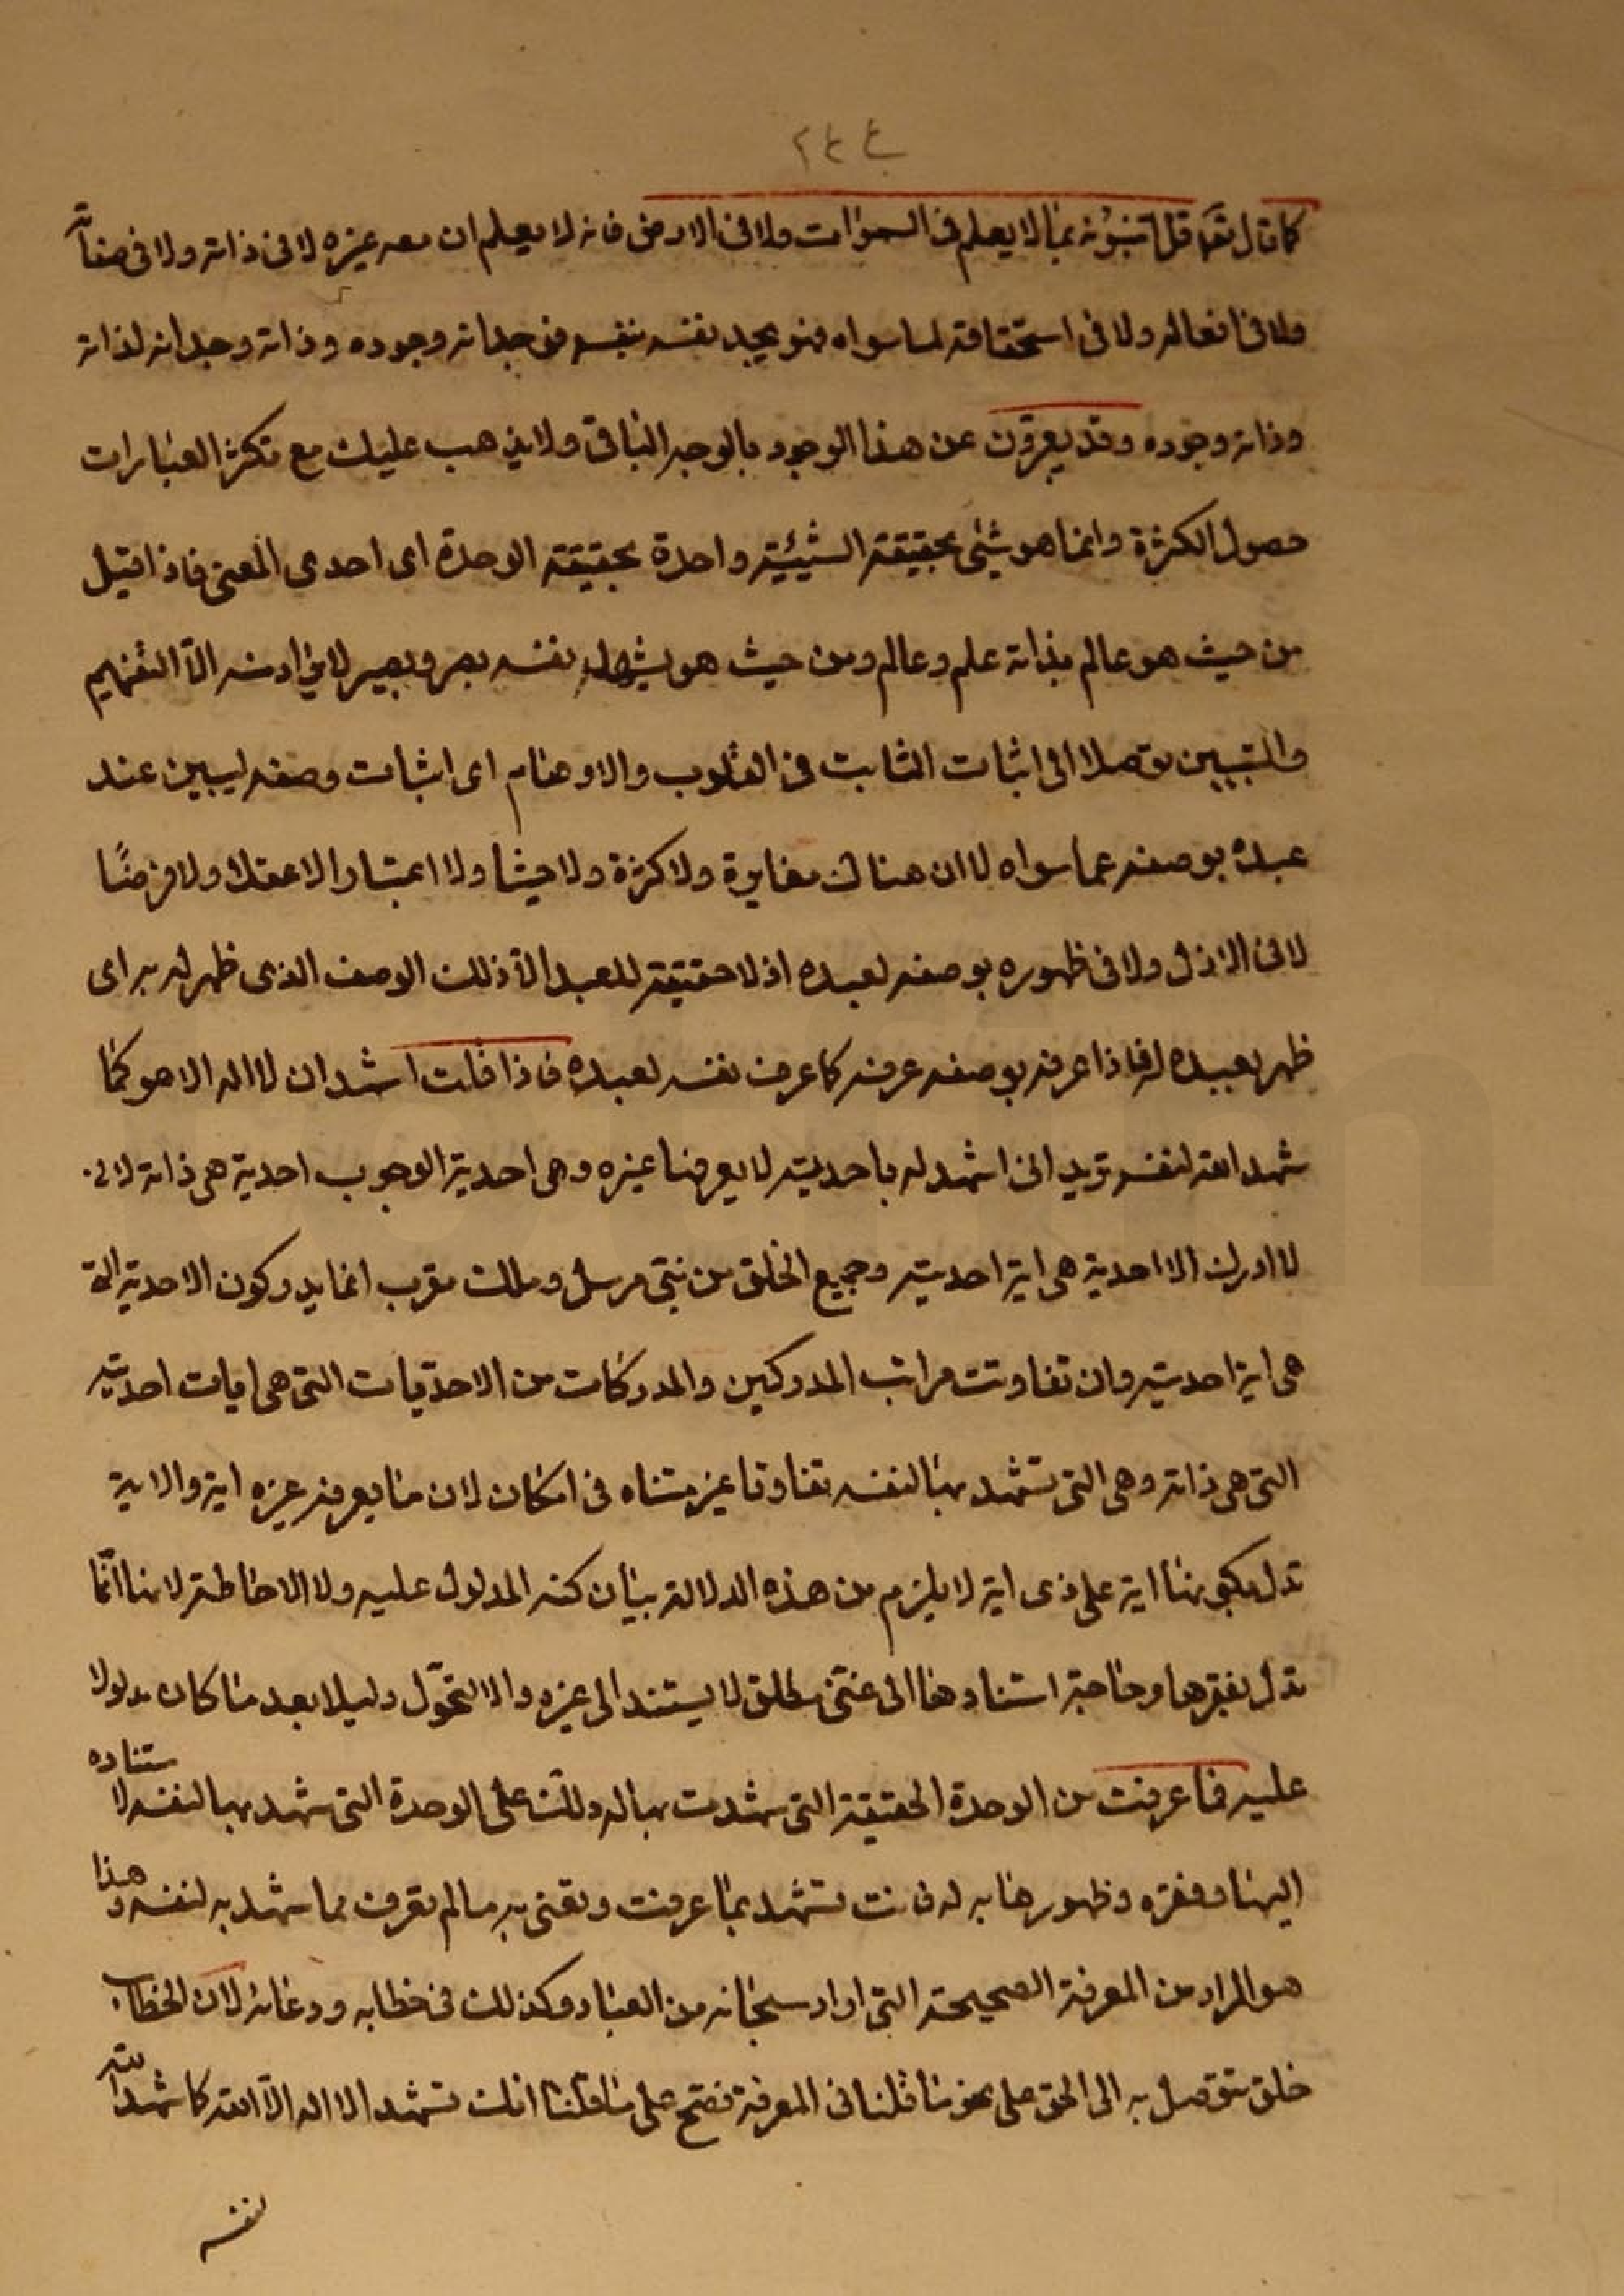 ٢٤٤
كما قال تعالى قل اتنبؤنه بما لا يعلم فى السموات ولا فى الارض فانه لا يعلم ان معه غيره لا فى ذاته ولا فى صفاته
ولا فى افعاله ولا فى استحقاقه لما سواه فهو يجد نفسه بنفسه فوجدانه وجوده وذاته وجدانه لذاته
وذاته وجوده وقد يعبرون عن هذا الوجود بالوجه الباقى ولا يذهب عليك مع تكثر العبارات
حصول الكثرة وانما هو شئ بحقيقة الشيئية واحدة بحقيقة الوحدة اى احدى المعنى فاذا قيل
من حيث هو عالم بذاته علم وعالم ومن حيث هو يشهد نفسه بصر وبصير لا يراد منه الا التفهيم
والتبيين توصلا الى اثبات الثابت فى القلوب والاوهام اى اثبات وصفه ليبين عند
عبده بوصفه عما سواه لا ان هناك مغايرة ولا كثرة ولا حيثا ولا اعتبارا لا عقلا ولا فرضًا
لا فى الازل ولا فى ظهوره بوصفه لعبده اذ لا حقيقة للعبد الا ذلك الوصف الذى ظهر له به اى
ظهر بعبده له فاذا عرفه بوصفه عرفه كما عرف نفسه لعبده فاذا قلت اشهد ان لا اله الا هو كما
شهد الله لنفسه تريد انى اشهد له باحديته لا يعرفها غيره وهى احدية الوجوب احدية هى ذاته لانى
لا ادرك الا احدية هى اية احديته وجميع الخلق من نبى مرسل وملك مقرب انما يدركون الاحدية التى
هى اية احديته وان تفاوتت مراتب المدركين والمدركات من الاحديات التى هى ايات احديته
التى هى ذاته وهى التى تشهد بها لنفسه تفاوتا غير متناه فى امكان لان ما يعرفه غيره اية والاية
تدل بكونها اية على ذى اية لا يلزم من هذه الدلالة بيان كنه المدلول عليه ولا الاحاطة لانها انما
تدل بفقرها وحاجة استنادها الى غنى مطلق لا يستند الى غيره والا لتحول دليلا بعد ما كان مدلولا
عليه فما عرفت من الوحدة الحقيقة التى شهدت بها له دلت على الوحدة التى شهد بها لنفسه لا ستناده
اليها وفقره وظهورها به له فانت تشهد بما عرفت وتعنى به ما لم تعرف مما شهد به لنفسه وهذا
هو المراد من المعرفة الصحيحة التى اراد سبحانه من العباد وكذلك فى خطابه ودعائه لان الخطاب
خلق يتوصل به الى الحق على نحو ما قلنا فى المعرفة فصح على ما قلنا انك تشهد الا اله الا الله كما شهد الله
لنفسه